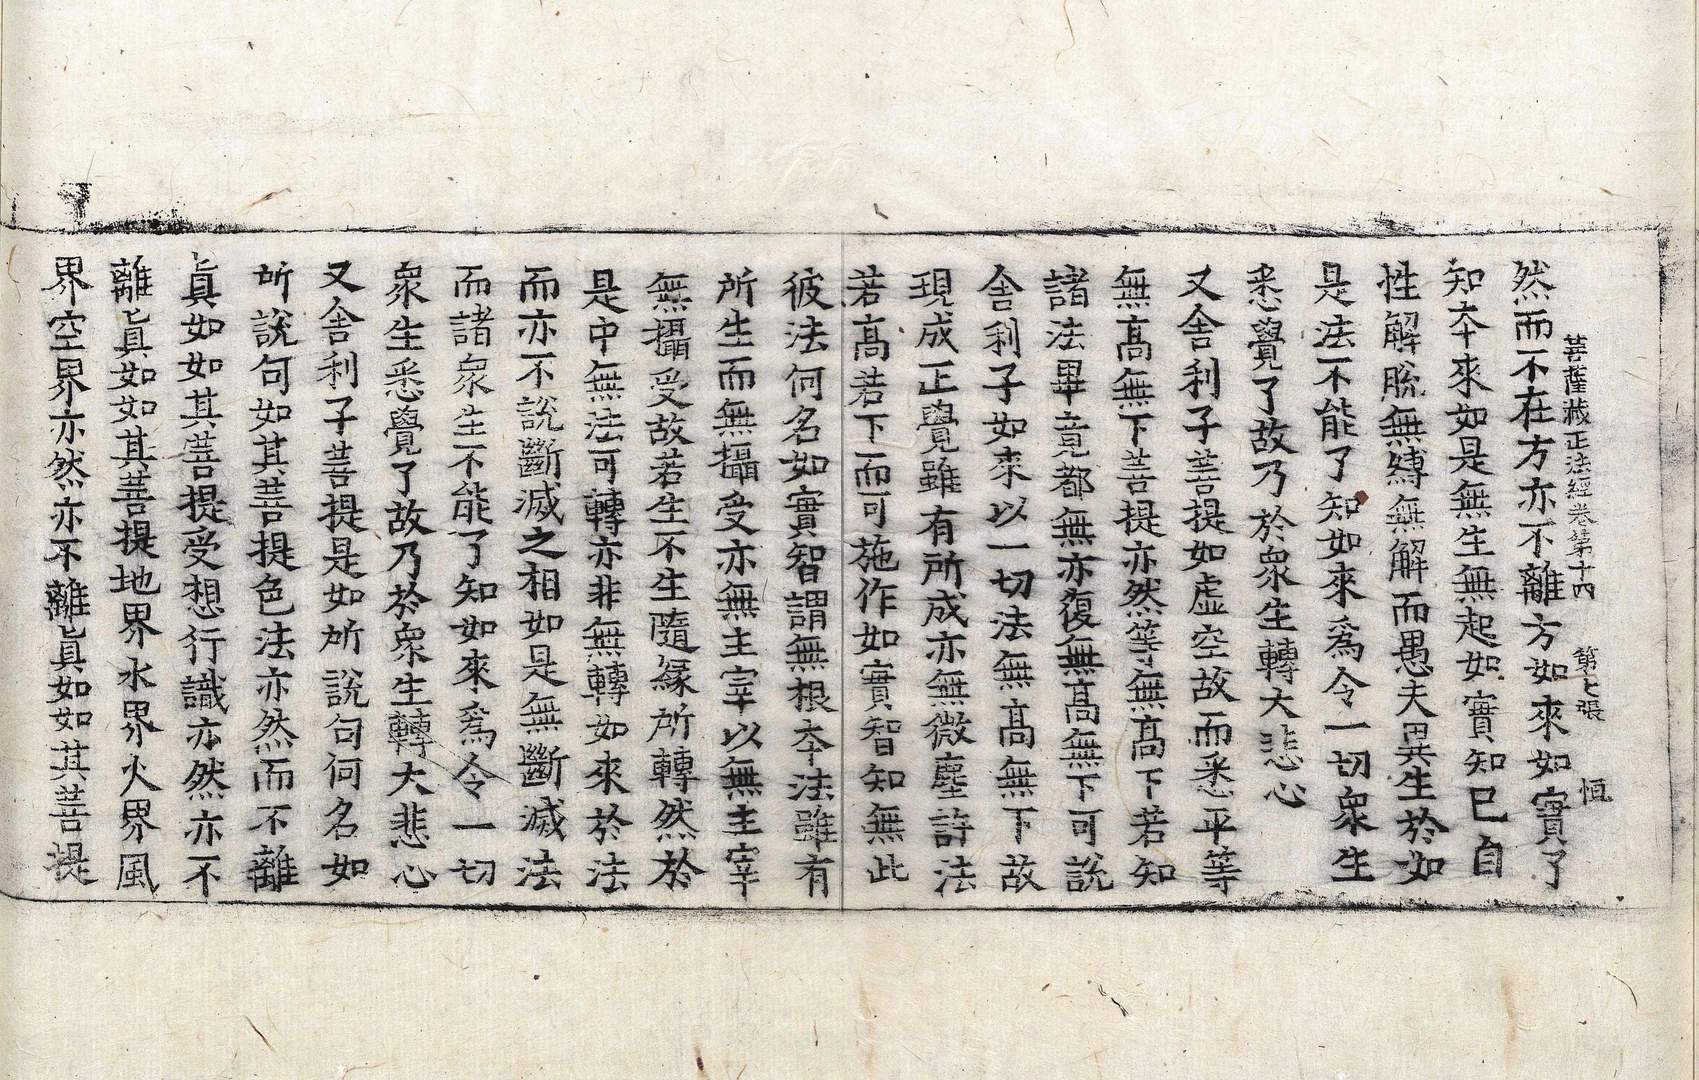 菩薩藏正法經卷第十四 第七張 恒
然而不在方亦不離方如來如實了
知夲來如是無生無起如實知已自
性解脫無縛無解而愚夫異生於如
是法不能了知如來爲令一切衆生
悉覺了故乃於衆生轉大悲心
又舍利子菩提如虛空故而悉平等
無髙無下菩提亦然等無髙下若知
諸法畢竟都無亦復無髙無下可說
舍利子如來以一切法無髙無下故
現成正覺雖有所成亦無微塵許法
若髙若下而可施作如實智知無此
彼法何名如實智謂無根夲法雖有
所生而無攝受亦無主宰以無主宰
無攝受故若生不生隨緣所轉然於
是中無法可轉亦非無轉如來於法
而亦不說斷滅之相如是無斷滅法
而諸衆生不能了知如來爲令一切
衆生悉覺了故乃於衆生轉大悲心
又舍利子菩提是如所說句何名如
所說句如其菩提色法亦然而不離
眞如如其菩提受想行識亦然亦不
離眞如如其菩提地界水界火界風
界空界亦然亦不離眞如如其菩提